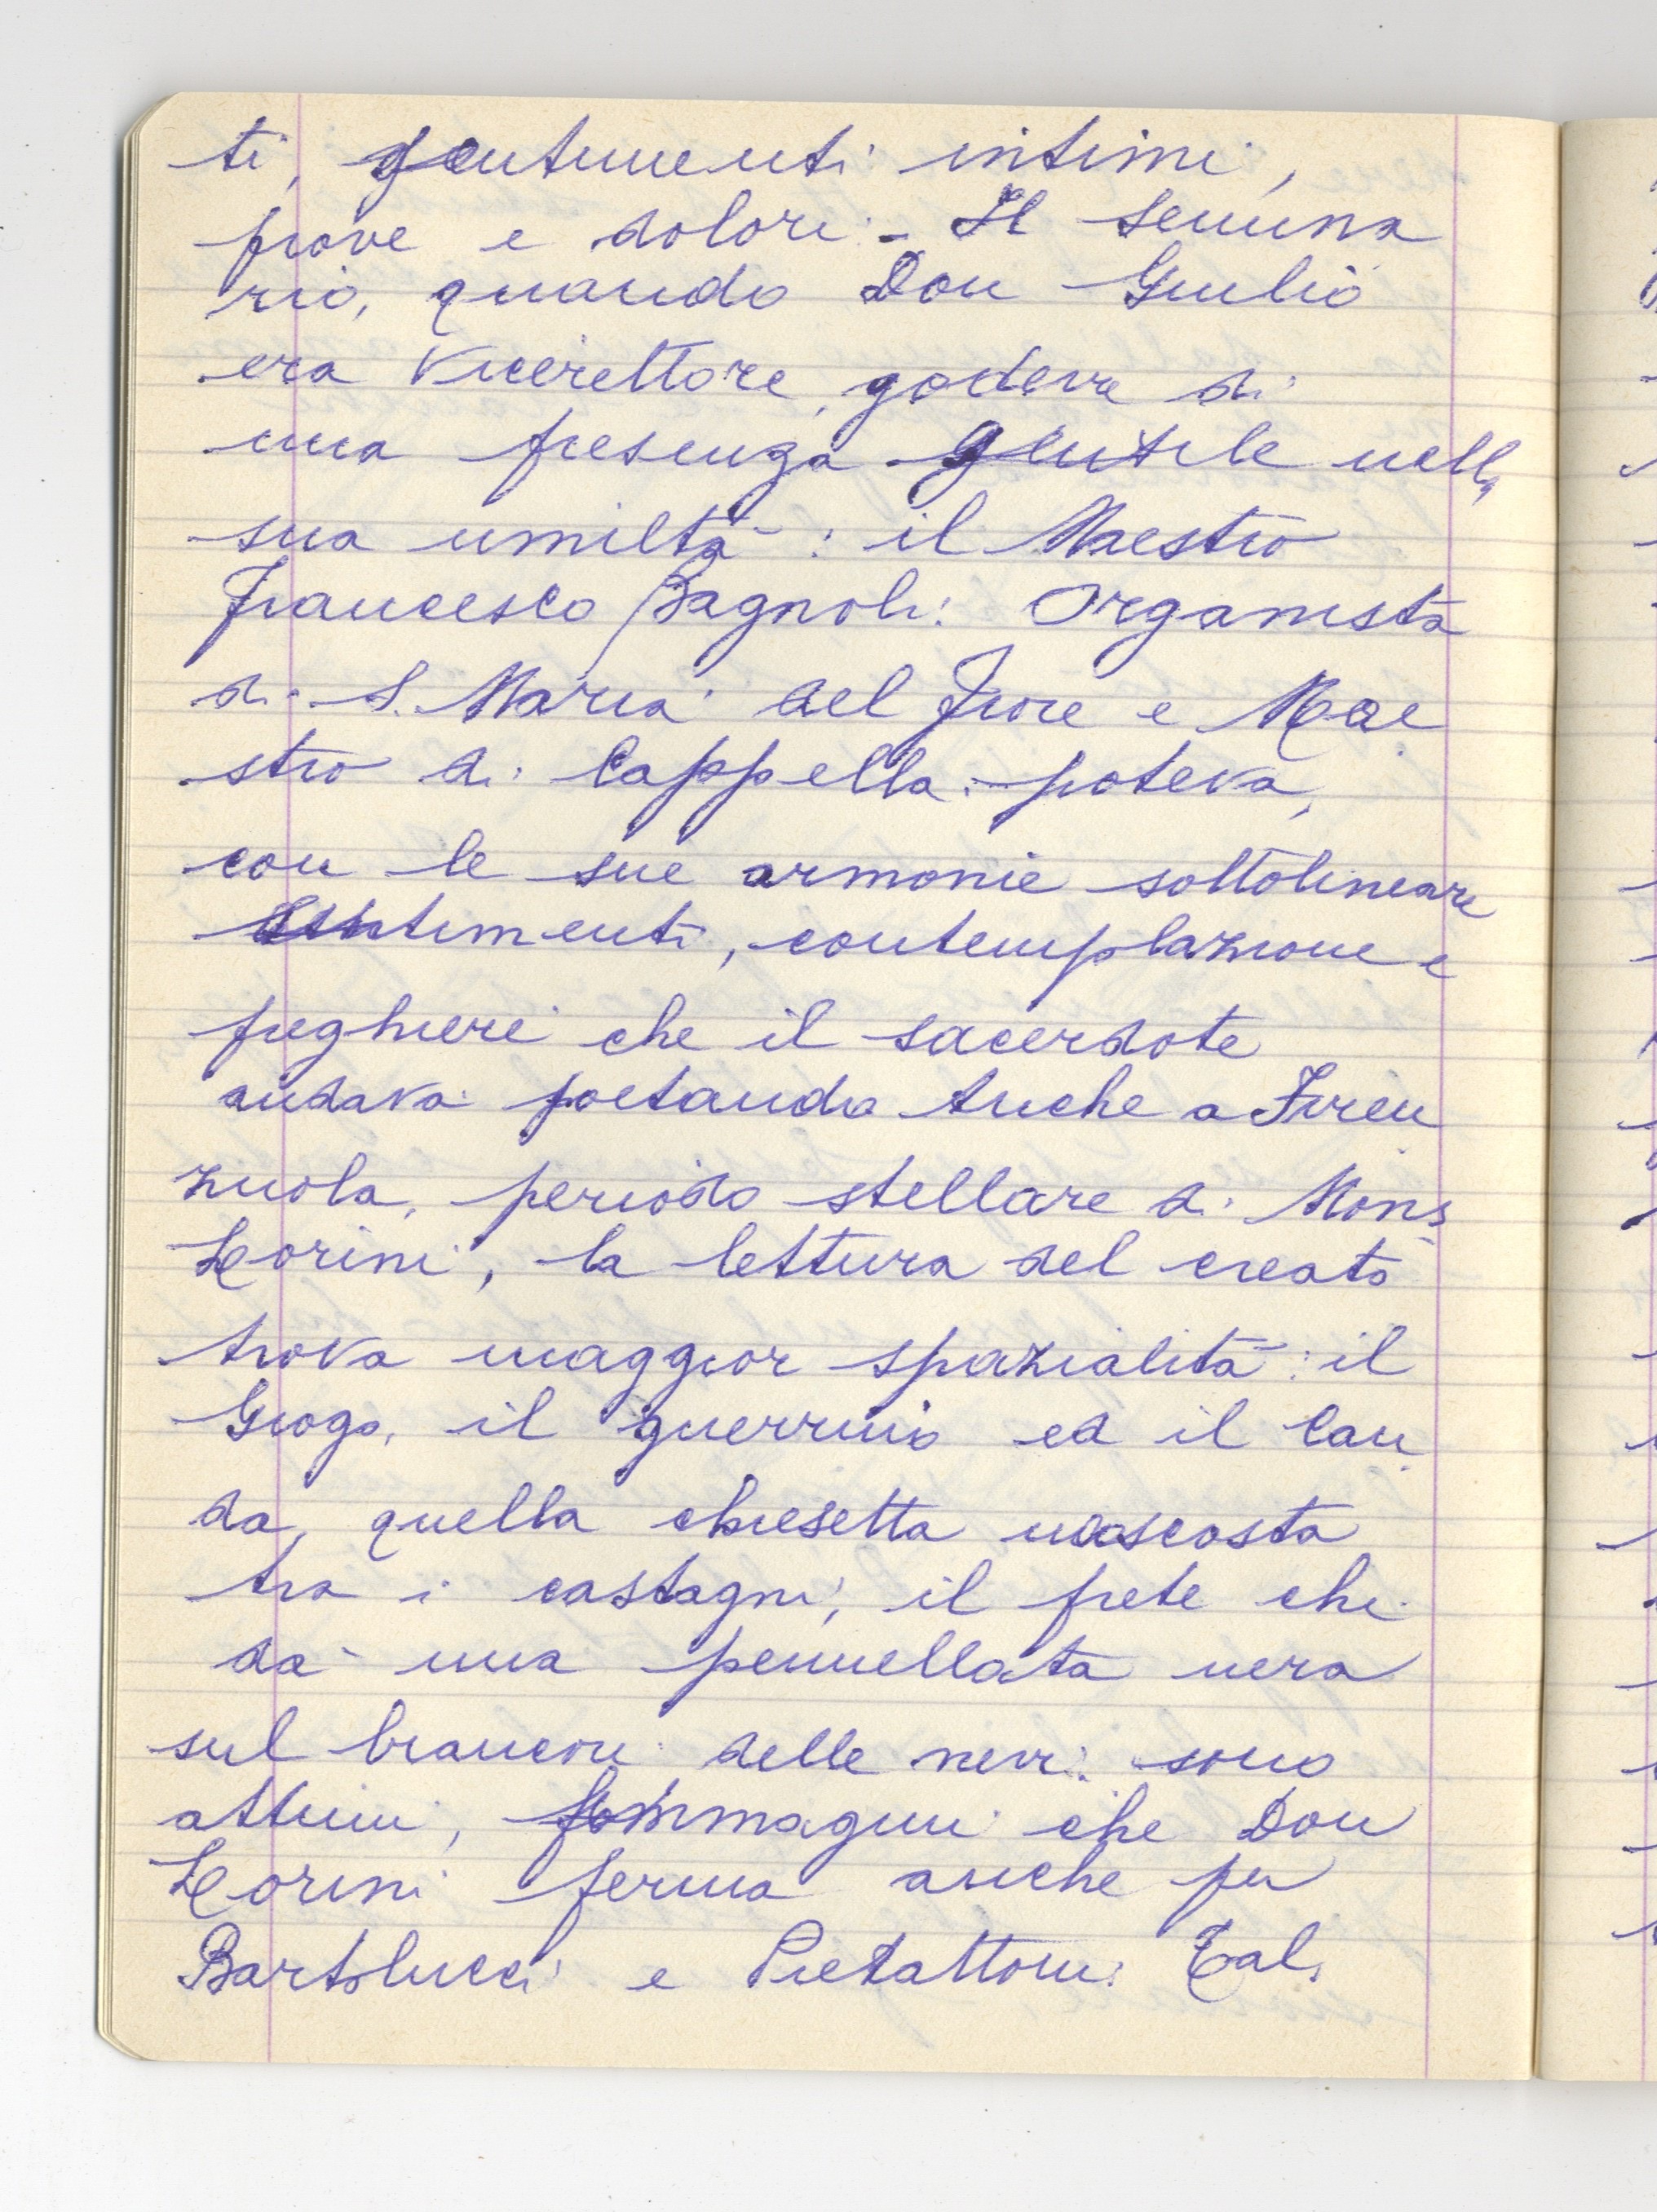 ti, sentimenti intimi,
prove e dolori. Il semina
rio, quando Don Giulio
era Vicerettore, godeva di
una presenza gentile nella
sua umiltà: il Maestro
Francesco Bagnoli: Organista
di S. Maria del Fiore e Mae
stro di Cappella: poteva,
con le sue armonie sottolineare
sentimenti, contemplazione e
preghiere che il sacerdote
andava poetando Anche a Firen
zuola, periodo stellare di Mons
Lorini, la lettura del creato
trova maggior spazialità: il
Giogo, il guerrino ed il Can
da, quella chiesetta nascosta
tra i castagni, il prete che
dà una pennellata nera
sul brancori delle nevi: sono
attimi, immagini che Don
Lorini ferma anche per
Bartolucci e Pietattoni. Tal